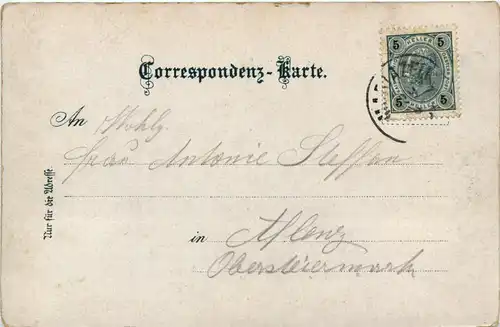 5 HELLER 5
Correspondenz-Karte.
5 HELLER 5
An Wohlg.
Frau Antonie Steffan
Nur für die Adresse.
in Aflenz
Obersteiermark